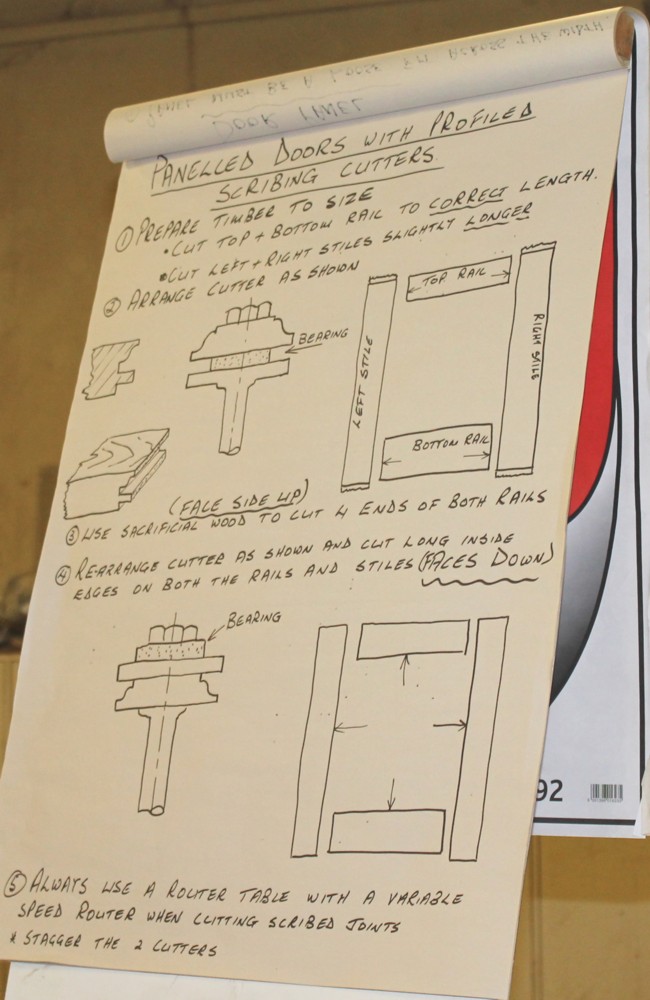 PANELLED DOORS WITH PROFILED
SCRIBING CUTTERS.
① PREPARE TIMBER TO SIZE
• CUT TOP + BOTTOM RAIL TO CORRECT LENGTH.
• CUT LEFT + RIGHT STILES SLIGHTLY LONGER
② ARRANGE CUTTER AS SHOWN
BEARING
TOP RAIL
LEFT STILE
RIGHT STILE
BOTTOM RAIL
(FACE SIDE UP)
③ USE SACRIFICIAL WOOD TO CUT 4 ENDS OF BOTH RAILS
④ REARRANGE CUTTER AS SHOWN AND CUT LONG INSIDE
EDGES ON BOTH THE RAILS AND STILES (FACES DOWN)
BEARING
⑤ ALWAYS USE A ROUTER TABLE WITH A VARIABLE
SPEED ROUTER WHEN CUTTING SCRIBED JOINTS
* STAGGER THE 2 CUTTERS
92